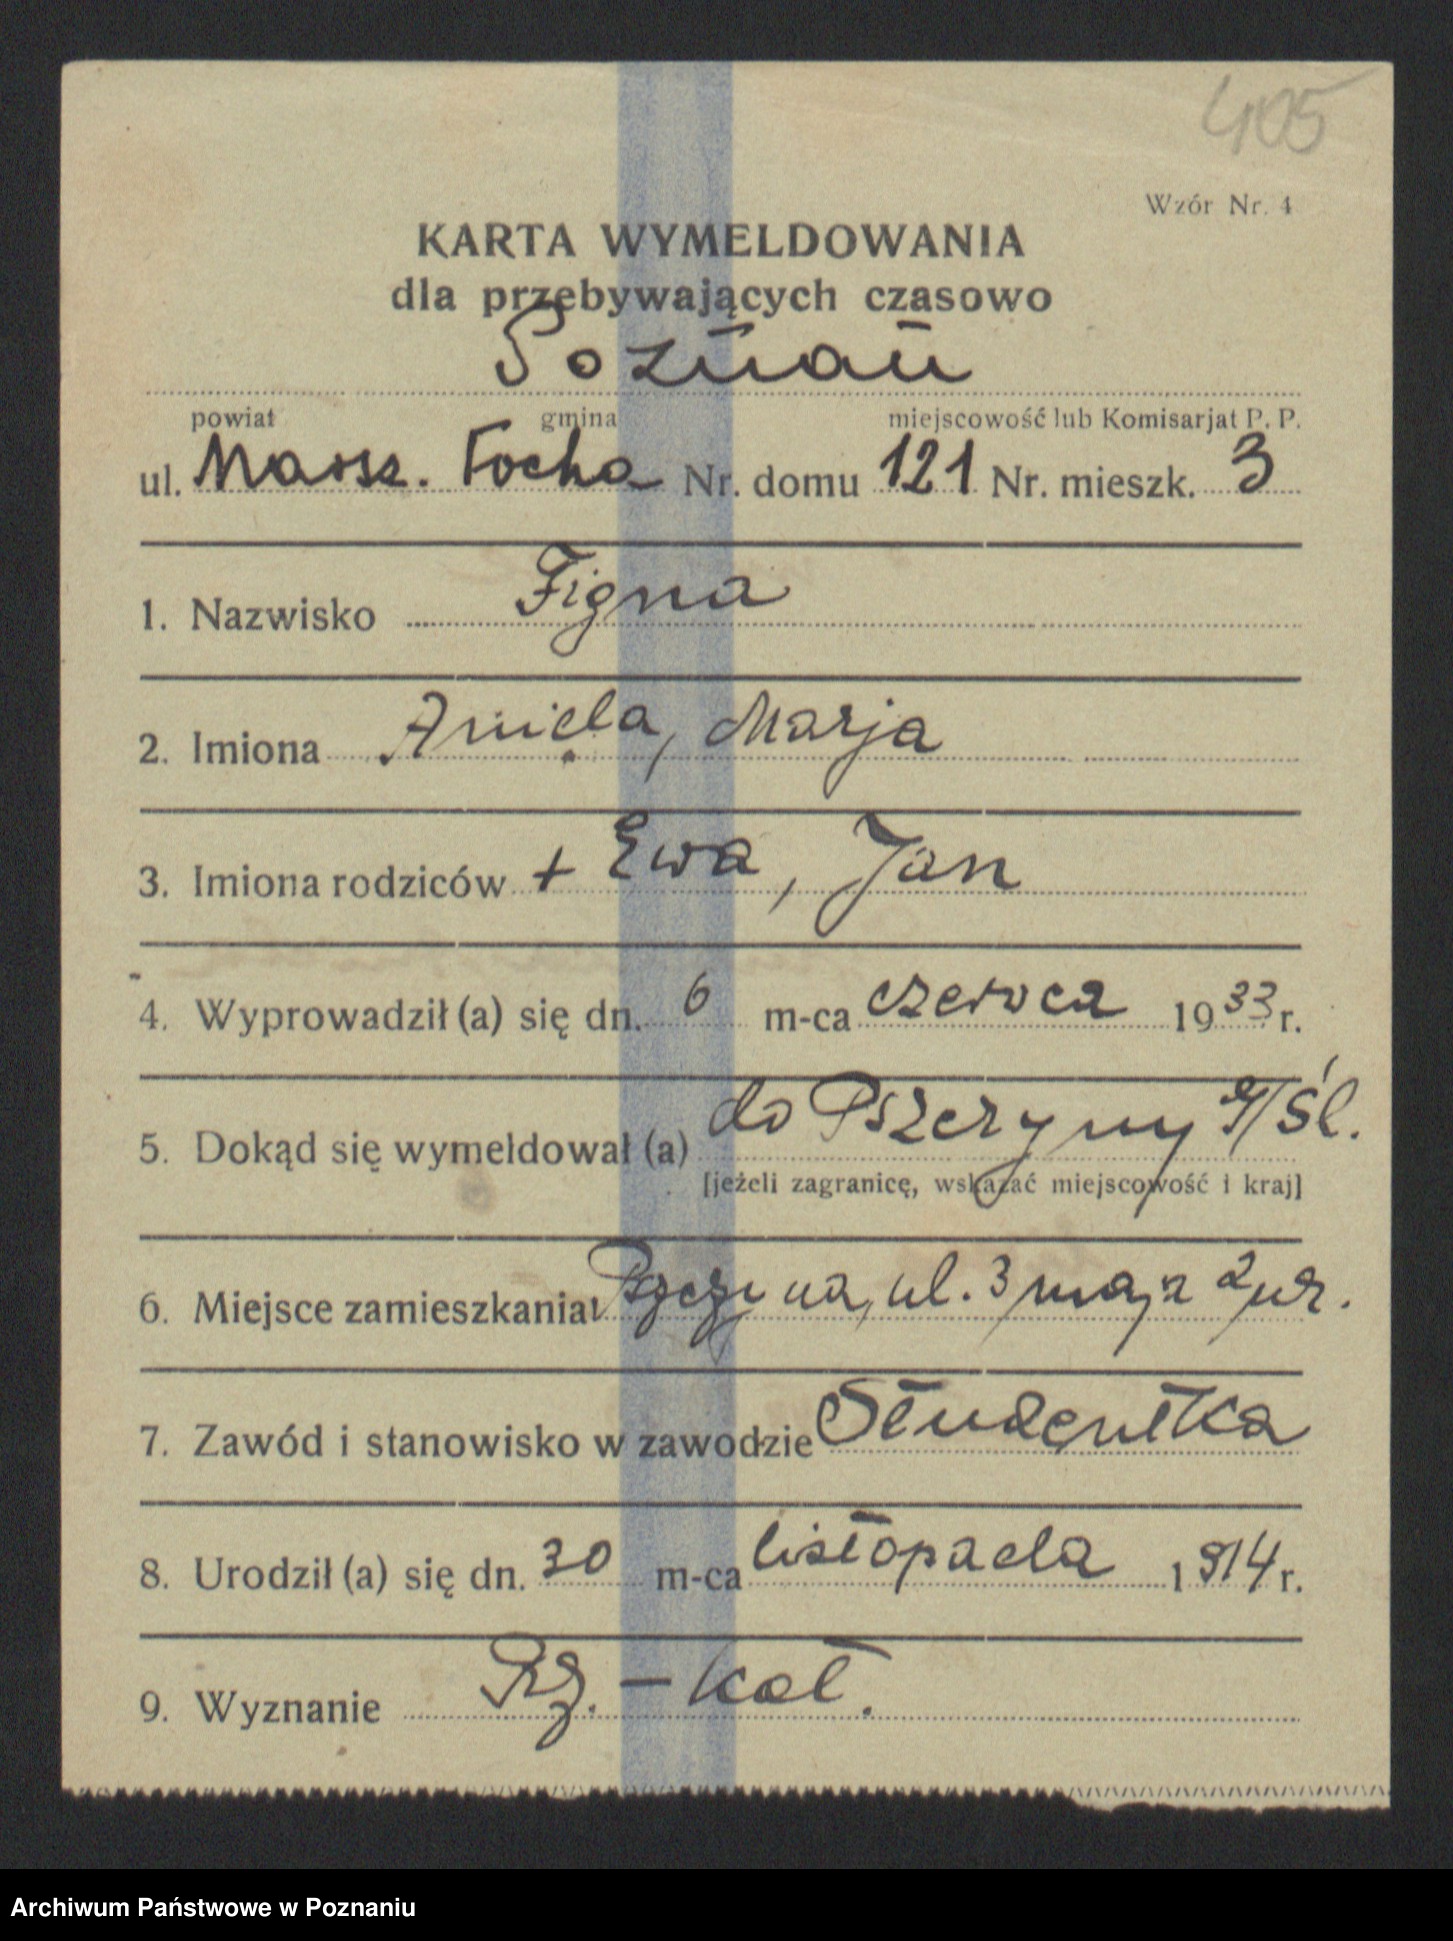 405
Wzór Nr. 4
KARTA WYMELDOWANIA
dla przebywających czasowo
Poznań
powiat gmina miejscowość lub Komisarjat P. P.
ul. Marsz. Focha Nr. domu 121 Nr. mieszk. 3
1. Nazwisko Figna
2. Imiona Aniela, Marja
3. Imiona rodziców + Ewa, Jan
4. Wyprowadził (a) się dn. 6 m-ca czerwca 1933 r.
5. Dokąd się wymeldował (a) do Pszczyny G/Śl.
[jeżeli zagranicę, wskazać miejscowość i kraj]
6. Miejsce zamieszkania Pszczyna, ul. 3 maja
7. Zawód i stanowisko w zawodzie Studentka
8. Urodził (a) się dn. 30 m-ca listopada 1914 r.
9. Wyznanie Rz. – kat.
Archiwum Państwowe w Poznaniu